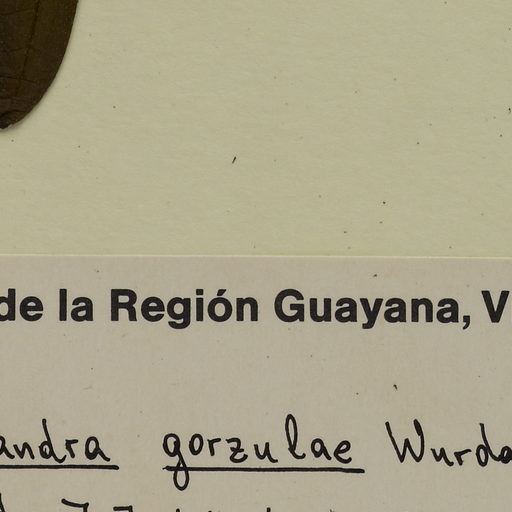 de la Región Guayana, V
andra gorzulae Wurda